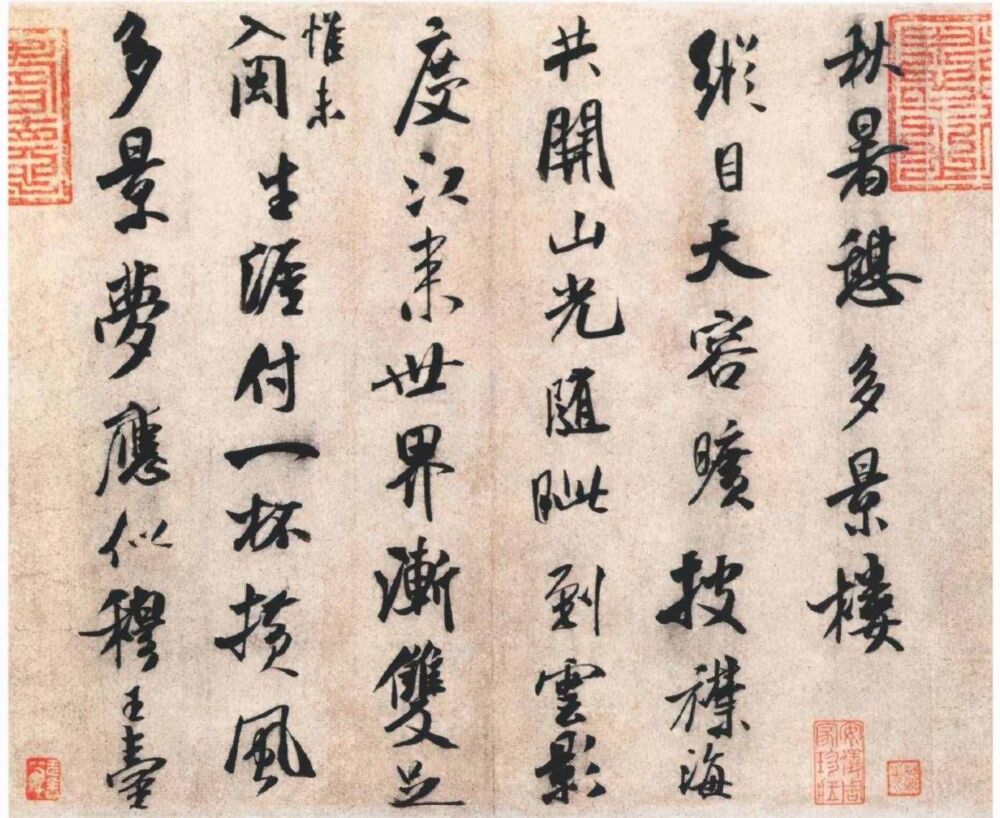 秋暑憩多景樓
縱目天容曠披襟海
共開山光隨眦到雲影
度江來世界漸雙足
惟未
入閩生涯付一杯橫風
多景夢應似穆王臺
安儀周
家珍藏